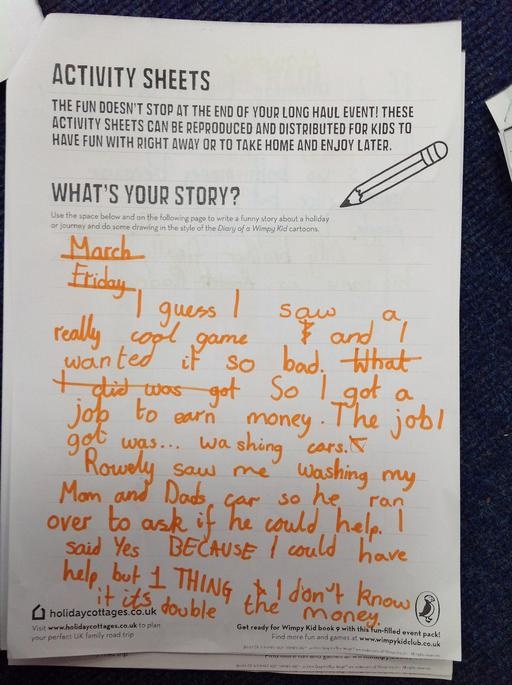 ACTIVITY SHEETS
THE FUN DOESN'T STOP AT THE END OF YOUR LONG HAUL EVENT! THESE
ACTIVITY SHEETS CAN BE REPRODUCED AND DISTRIBUTED FOR KIDS TO
HAVE FUN WITH RIGHT AWAY OR TO TAKE HOME AND ENJOY LATER.
WHAT'S YOUR STORY?
Use the space below and on the following page to write a funny story about a holiday
or journey and do some drawing in the style of the Diary of a Wimpy Kid cartoons.
March
Friday
I guess I saw a
really cool game and I
wanted it so bad. What
I did was got So I got a
job to earn money. The job I
got was... washing cars.
Rowely saw me washing my
Mom and Dads car so he ran
over to ask if he could help. I
said Yes BECAUSE I could have
help but 1 THING I don't know
it its double the money.
holidaycottages.co.uk
Visit www.holidaycottages.co.uk to plan
your perfect UK family road trip
Get ready for Wimpy Kid book 9 with this fun-filled event pack!
Find more fun and games at www.wimpykidclub.co.uk